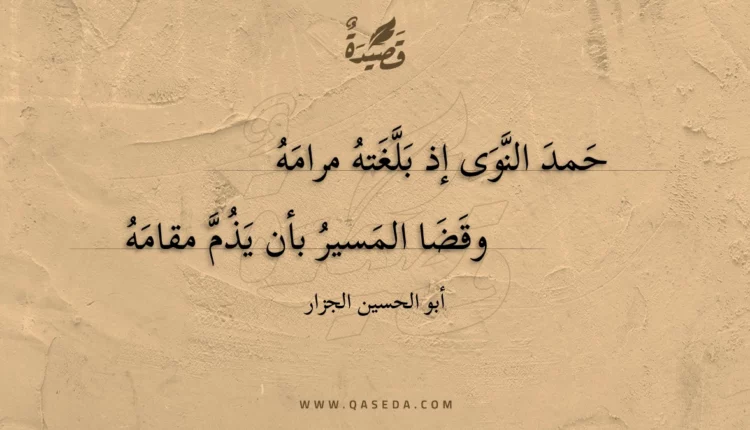 قَصِيْدَةٌ
حَمدَ النَّوَى إذ بَلَّغَتهُ مرامَهُ
وقَضَا المَسيرُ بأن يَذُمَّ مقامَهُ
أبو الحسين الجزار
WWW.QASEDA.COM